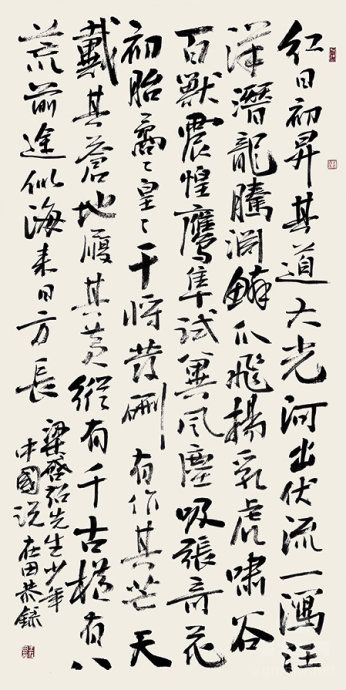 红日初昇其道大光河出伏流一瀉汪
洋潛龍騰淵鳞爪飛揚乳虎嘯谷
百獸震惶鷹隼試翼風塵吸張奇花
初胎矞〻皇〻干將發硎有作其芒天
戴其蒼地履其黄縱有千古横有八
荒前途似海来日方長
梁啓超先生少年
中國说在田恭録